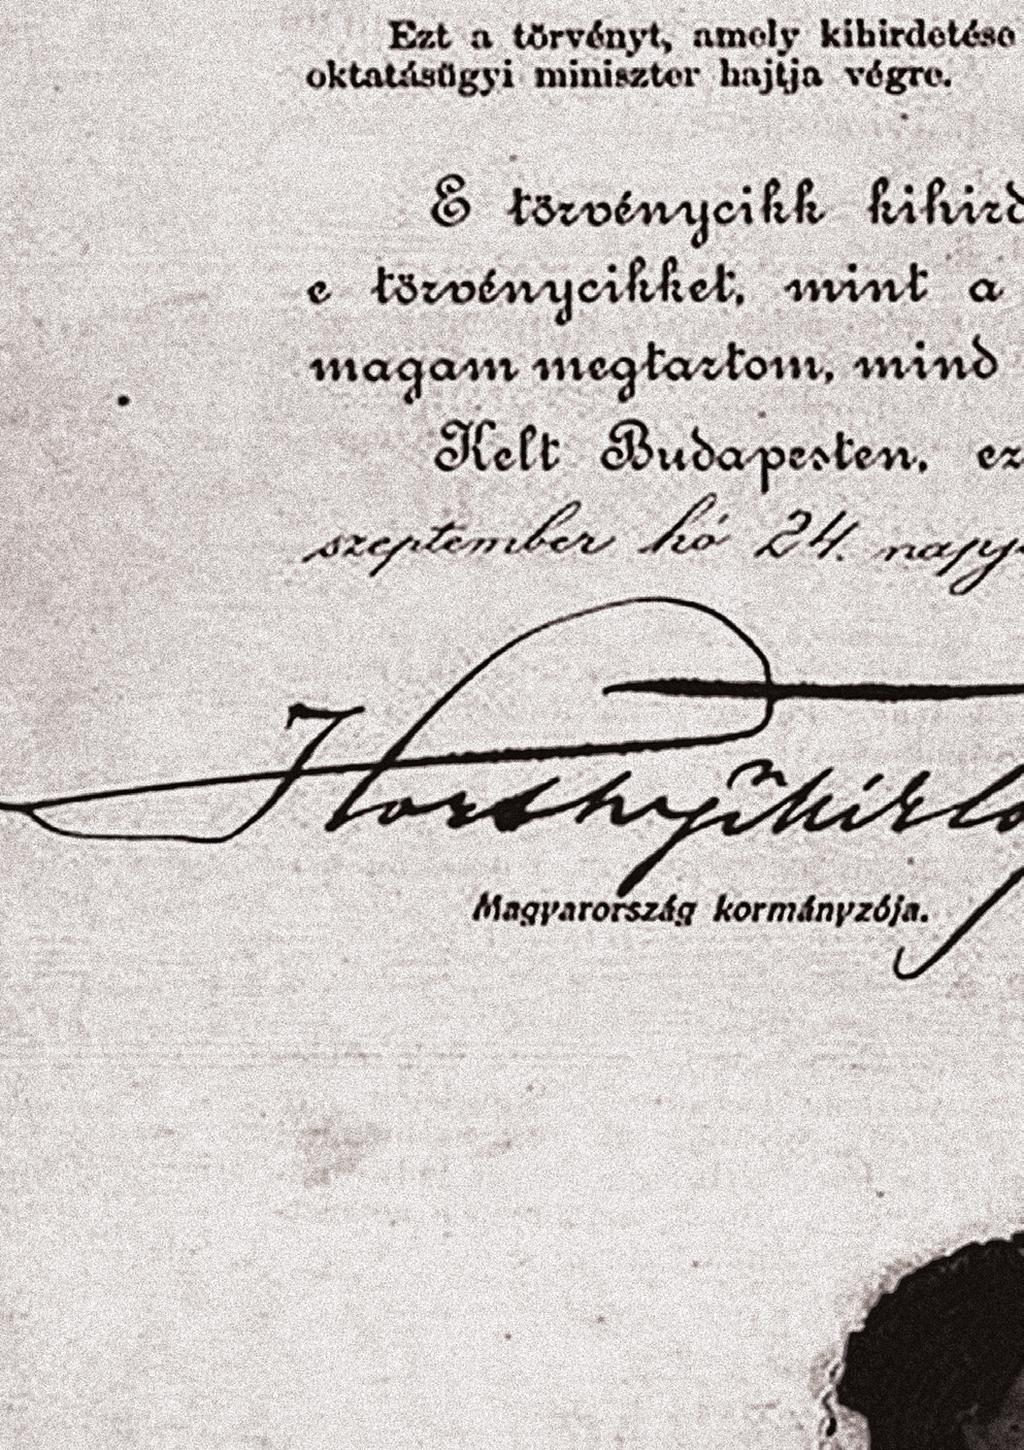 Ezt a törvényt, amely kihirdetése
oktatásügyi miniszter hajtja végre.
E törvénycikk kihird
e törvénycikket, mint a
magam megtartom, mind
Kelt Budapesten, ez
szeptember hó 24. nagy-
Horthy Miklós
Magyarország kormányzója.